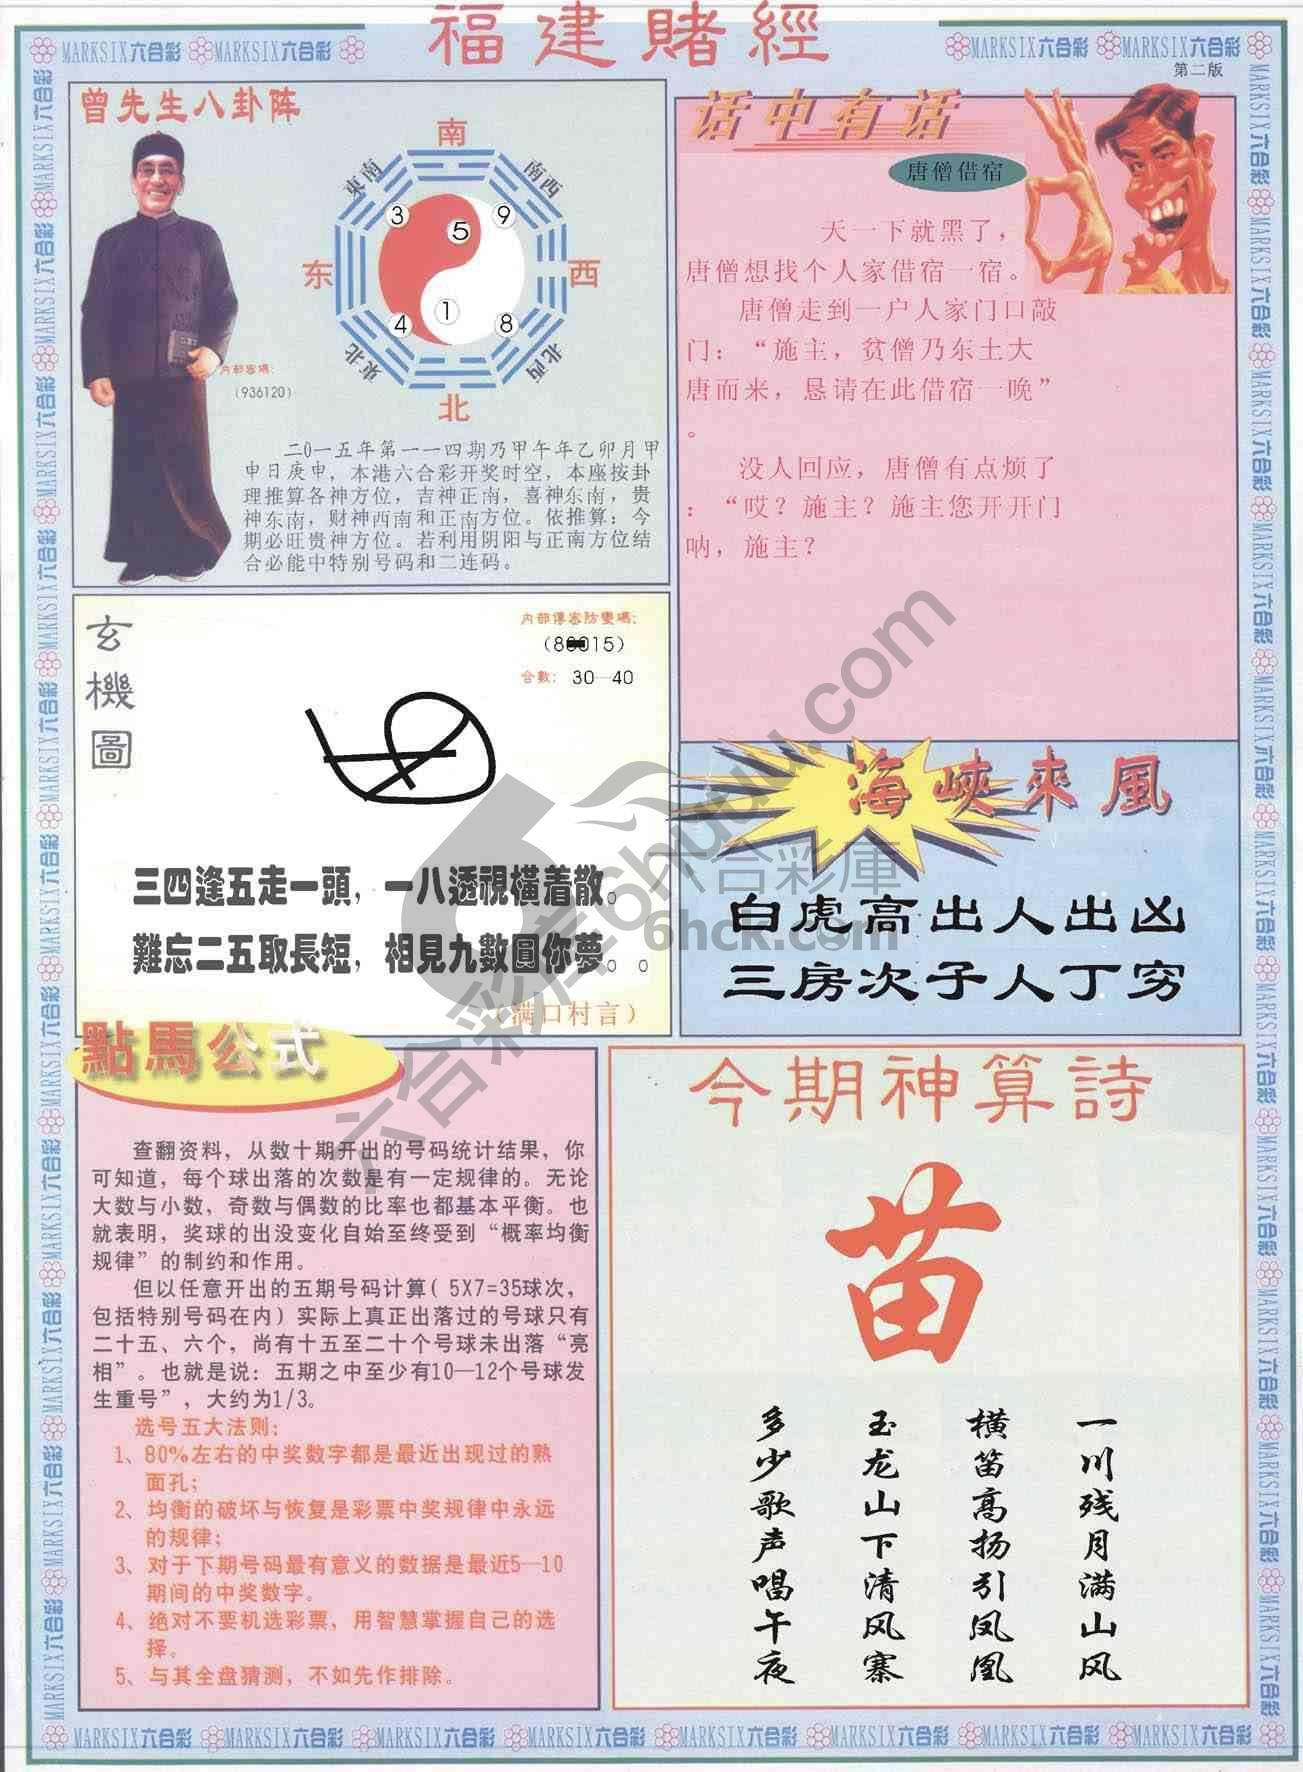 福建賭經
MARKSIX六合彩 MARKSIX六合彩
MARKSIX六合彩 MARKSIX六合彩
第二版
曾先生八卦阵
南
東南
南西
3
9
5
东
西
1
4
8
東北
北西
北
内部密碼:
(936120)
二0一五年第一一四期乃甲午年乙卯月甲
申日庚申，本港六合彩开奖时空，本座按卦
理推算各神方位，吉神正南，喜神东南，贵
神东南，财神西南和正南方位。依推算：今
期必旺贵神方位。若利用阴阳与正南方位结
合必能中特别号码和二连码。
话中有话
唐僧借宿
天一下就黑了，
唐僧想找个人家借宿一宿。
唐僧走到一户人家门口敲
门：“施主，贫僧乃东土大
唐而来，恳请在此借宿一晚”
。
没人回应，唐僧有点烦了
：“哎？施主？施主您开开门
呐，施主？
玄機圖
内部傳密防變碼:
15)
合數: 30—40
三四逢五走一頭，一八透視橫着散。
難忘二五取長短，相見九數圓你夢。。
(满口村言)
海峽來風
白虎高出人出凶
三房次子人丁穷
點馬公式
查翻资料，从数十期开出的号码统计结果，你
可知道，每个球出落的次数是有一定规律的。无论
大数与小数，奇数与偶数的比率也都基本平衡。也
就表明，奖球的出没变化自始至终受到“概率均衡
规律”的制约和作用。
但以任意开出的五期号码计算( 5X7=35球次，
包括特别号码在内)实际上真正出落过的号球只有
二十五、六个，尚有十五至二十个号球未出落“亮
相”。也就是说：五期之中至少有10—12个号球发
生重号”，大约为1/3。
选号五大法则:
1、80%左右的中奖数字都是最近出现过的熟
面孔;
2、均衡的破坏与恢复是彩票中奖规律中永远
的规律;
3、对于下期号码最有意义的数据是最近5—10
期间的中奖数字。
4、绝对不要机选彩票，用智慧掌握自己的选
择。
5、与其全盘猜测，不如先作排除。
今期神算詩
苗
一川残月满山风
横笛高扬引凤凰
玉龙山下清风寨
多少歌声唱午夜
六合彩库6hguu.com
六合彩庫
6hck.com
MARKSIX六合彩 MARKSIX六合彩 MARKSIX六合彩 MARKSIX六合彩 MARKSIX六合彩 MARKSIX六合彩 MARKSIX六合彩 MARKSIX六合彩